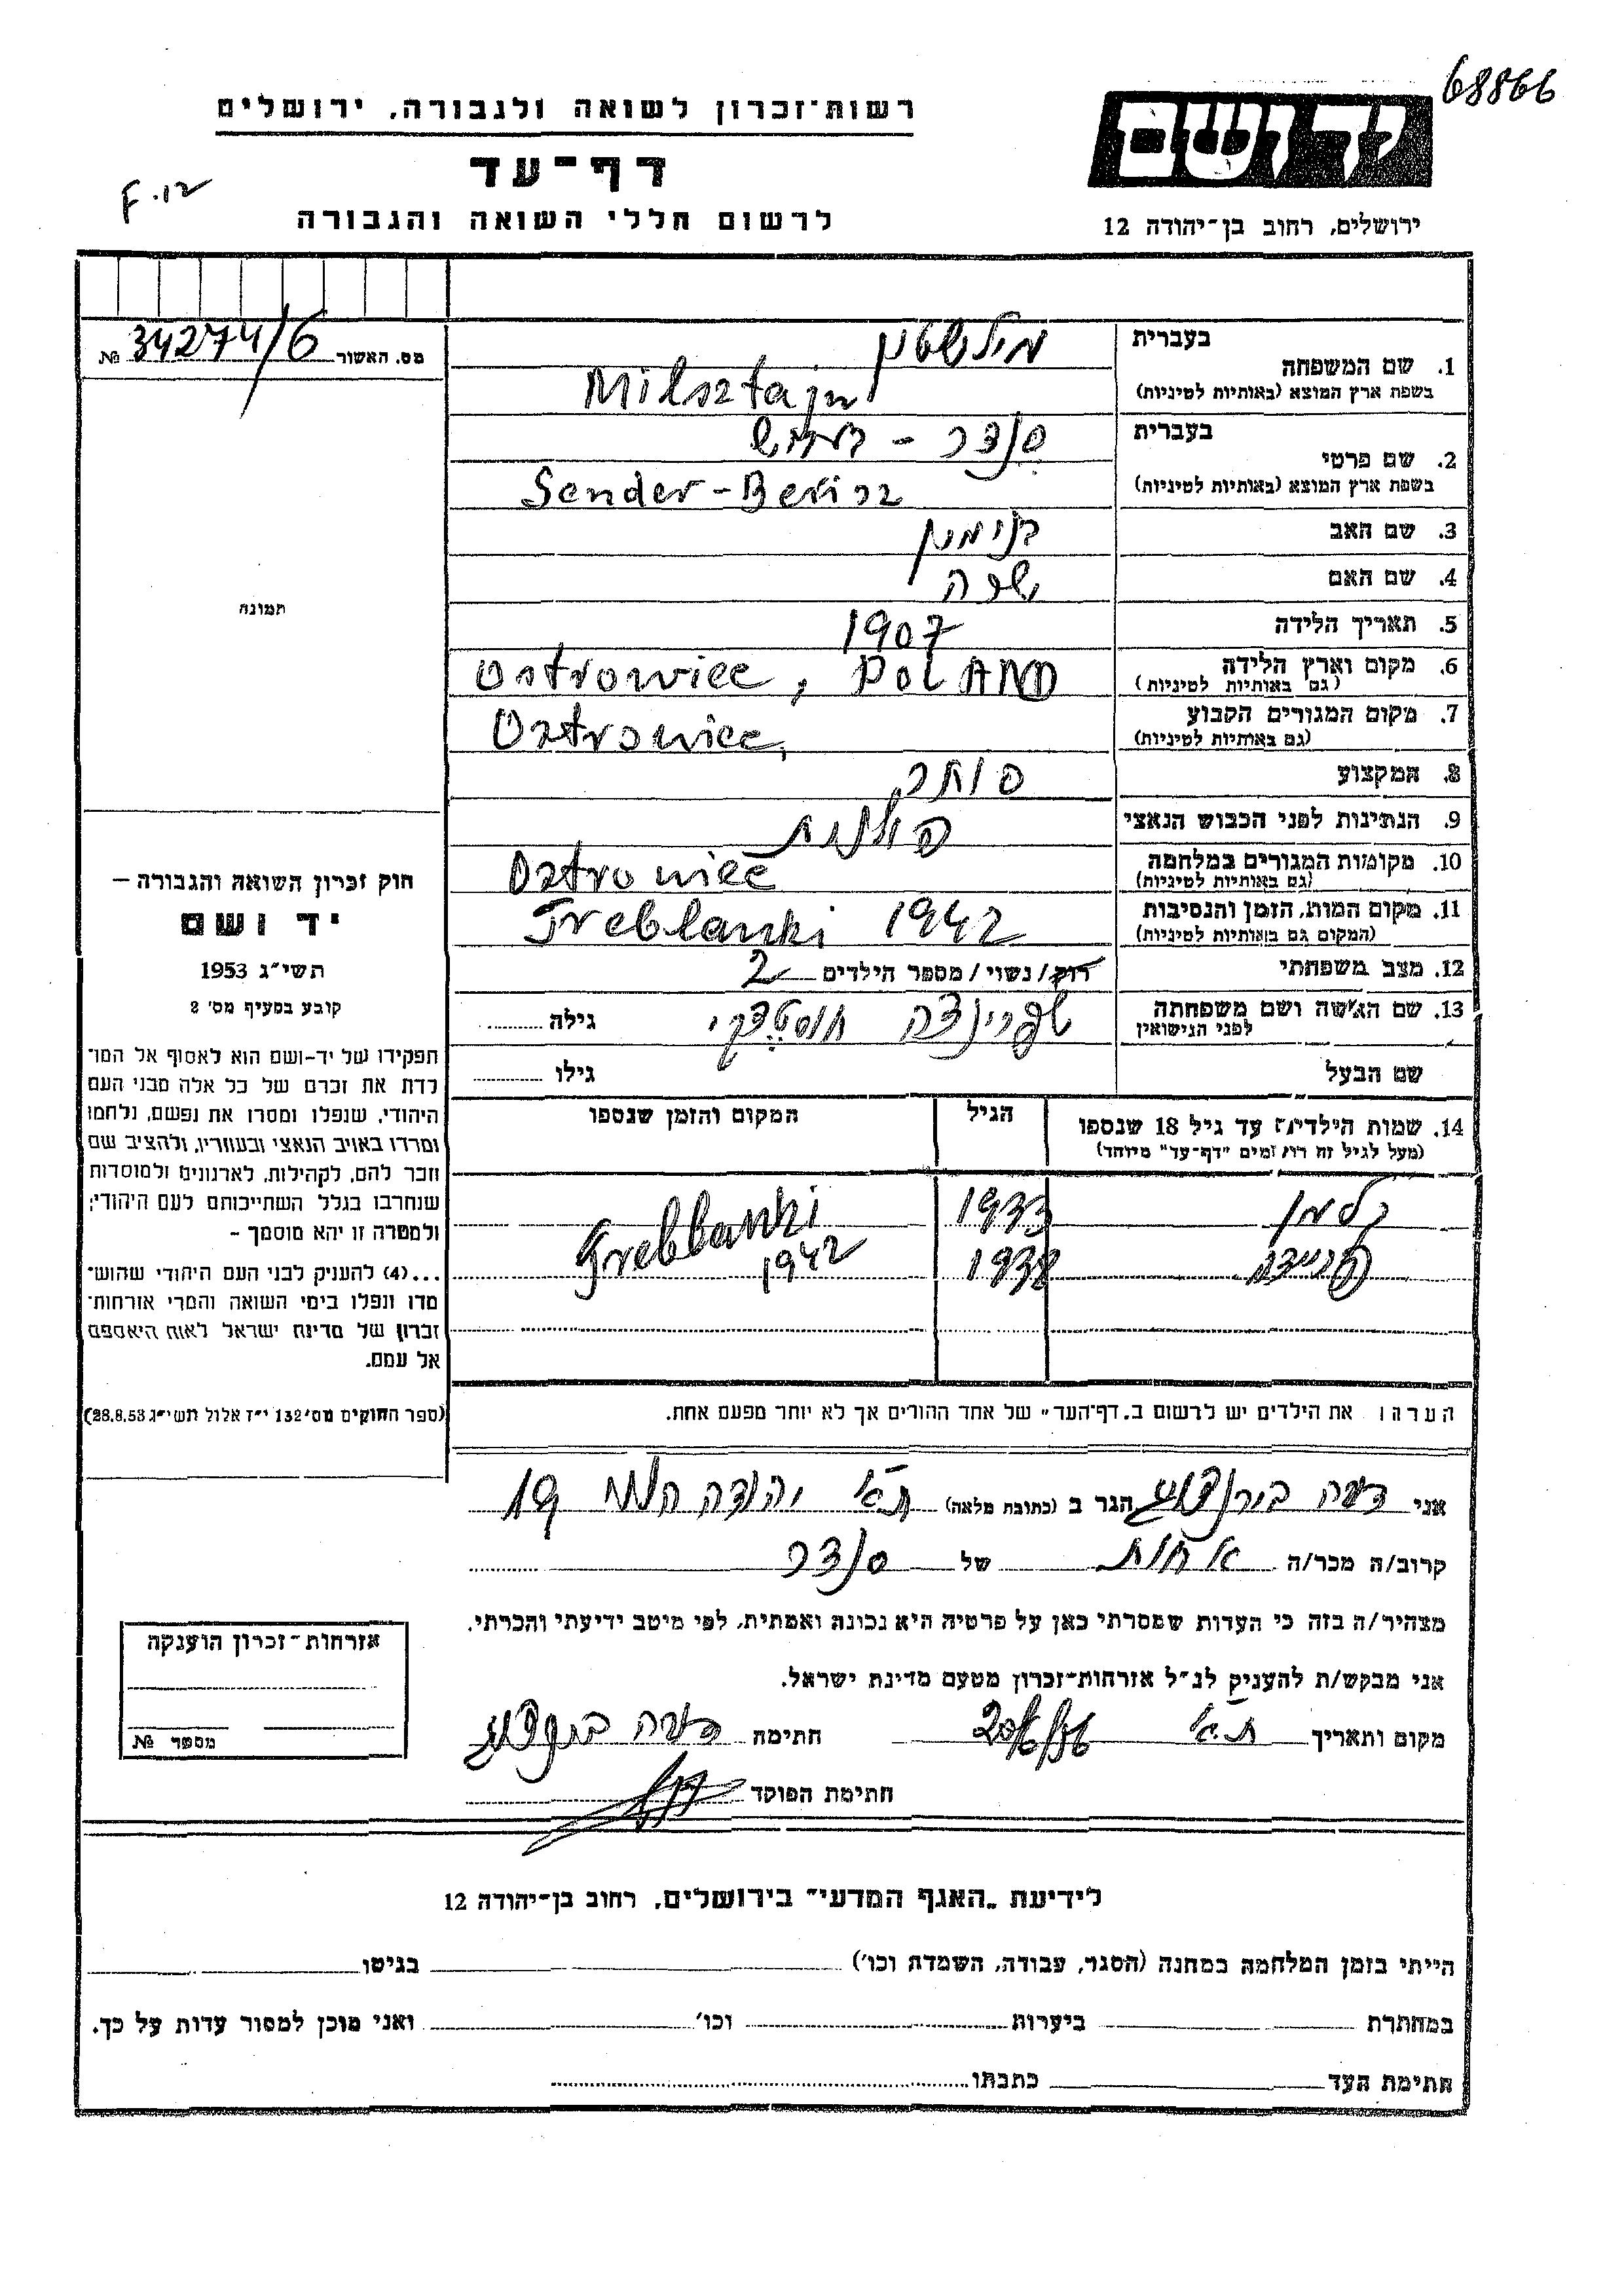 68866
רשות־זכרון לשואה ולגבורה, ירושלים
יד ושם
דף־עד
F.12
לרשום חללי השואה והגבורה
ירושלים, רחוב בן־יהודה 12
מס. האשור 34274/6 №
בעברית
1. שם המשפחה מילשטיין
בשפת ארץ המוצא (באותיות לטיניות) Milsztajn
בעברית
2. שם פרטי סנדר - בעריש
בשפת ארץ המוצא (באותיות לטיניות) Sender-Berisz
3. שם האב בנימין
4. שם האם שרה
5. תאריך הלידה 1907
6. מקום וארץ הלידה Ostrowiec, POLAND
(גם באותיות לטיניות)
7. מקום המגורים הקבוע Ostrowiec,
(גם באותיות לטיניות)
8. המקצוע סוחר
9. הנתינות לפני הכבוש הנאצי פולנית
10. מקומות המגורים במלחמה Ostrowiec
(גם באותיות לטיניות)
11. מקום המות, הזמן והנסיבות Treblanki 1942
(המקום גם באותיות לטיניות)
12. מצב משפחתי רוק/נשוי/מספר הילדים 2
13. שם האשה ושם משפחתה שפרינצה גילה
לפני הנישואין
שם הבעל גילו
14. שמות הילדים עד גיל 18 שנספו הגיל המקום והזמן שנספו
(מעל לגיל זה רושמים "דף־עד" מיוחד)
קלמן 1933 Treblanki
1938 1942
הערה: את הילדים יש לרשום ב„דף־העד" של אחד ההורים אך לא יותר מפעם אחת.
תמונה
חוק זכרון השואה והגבורה —
יד ושם
תשי"ג 1953
קובע בסעיף מס' 2
תפקידו של יד-ושם הוא לאסוף אל המו־
לדת את זכרם של כל אלה מבני העם
היהודי, שנפלו ומסרו את נפשם, נלחמו
ומרדו באויב הנאצי ובעוזריו, ולהציב שם
וזכר להם, לקהילות, לארגונים ולמוסדות
שנחרבו בגלל השתייכותם לעם היהודי;
ולמטרה זו יהא מוסמך -
...(4) להעניק לבני העם היהודי שהוש־
מדו ונפלו בימי השואה והמרי אזרחות־
זכרון של מדינת ישראל לאות היאספם
אל עמם.
(ספר החוקים מס' 132 י"ז אלול תשי"ג 28.8.53)
אני הגר ב (כתובת מלאה) ת"א יהודה הלוי
קרוב/ה מכר/ה אחות של סנדר
מצהיר/ה בזה כי העדות שמסרתי כאן על פרטיה היא נכונה ואמתית, לפי מיטב ידיעתי והכרתי.
אני מבקש/ת להעניק לנ"ל אזרחות־זכרון מטעם מדינת ישראל.
מקום ותאריך ת"א חתימה
חתימת הפוקד
אזרחות־זכרון הוענקה
מספר №
לידיעת „האגף המדעי" בירושלים, רחוב בן־יהודה 12
הייתי בזמן המלחמה במחנה (הסגר, עבודה, השמדת וכו') בגיטו
במחתרת ביערות וכו' ואני מוכן למסור עדות על כך.
חתימת העד כתבתו